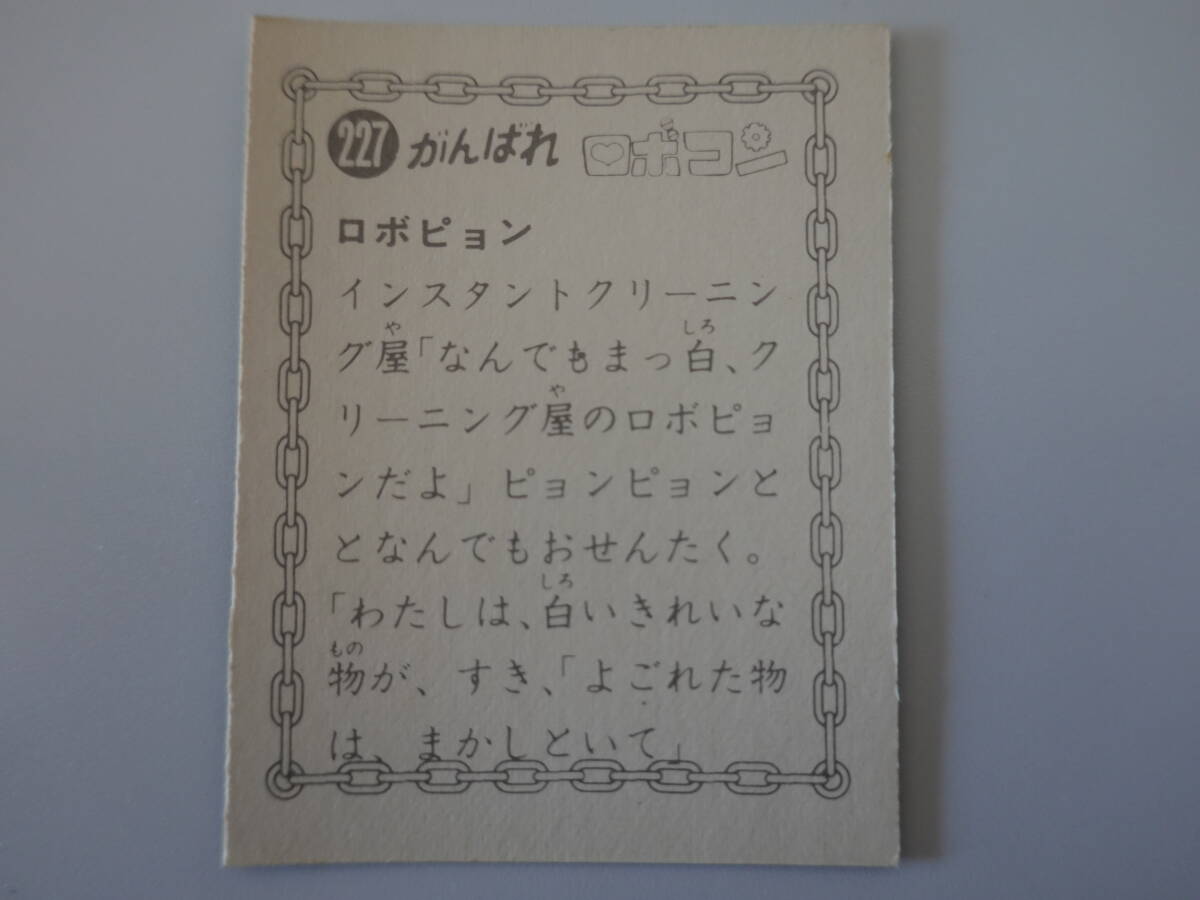 227 がんばれ ロボコン
ロボピョン
インスタントクリーニン
グ屋「なんでもまっ白、ク
リーニング屋のロボピョ
ンだよ」ピョンピョンと
となんでもおせんたく。
「わたしは、白いきれいな
物が、すき、「よごれた物
は、まかしといて」